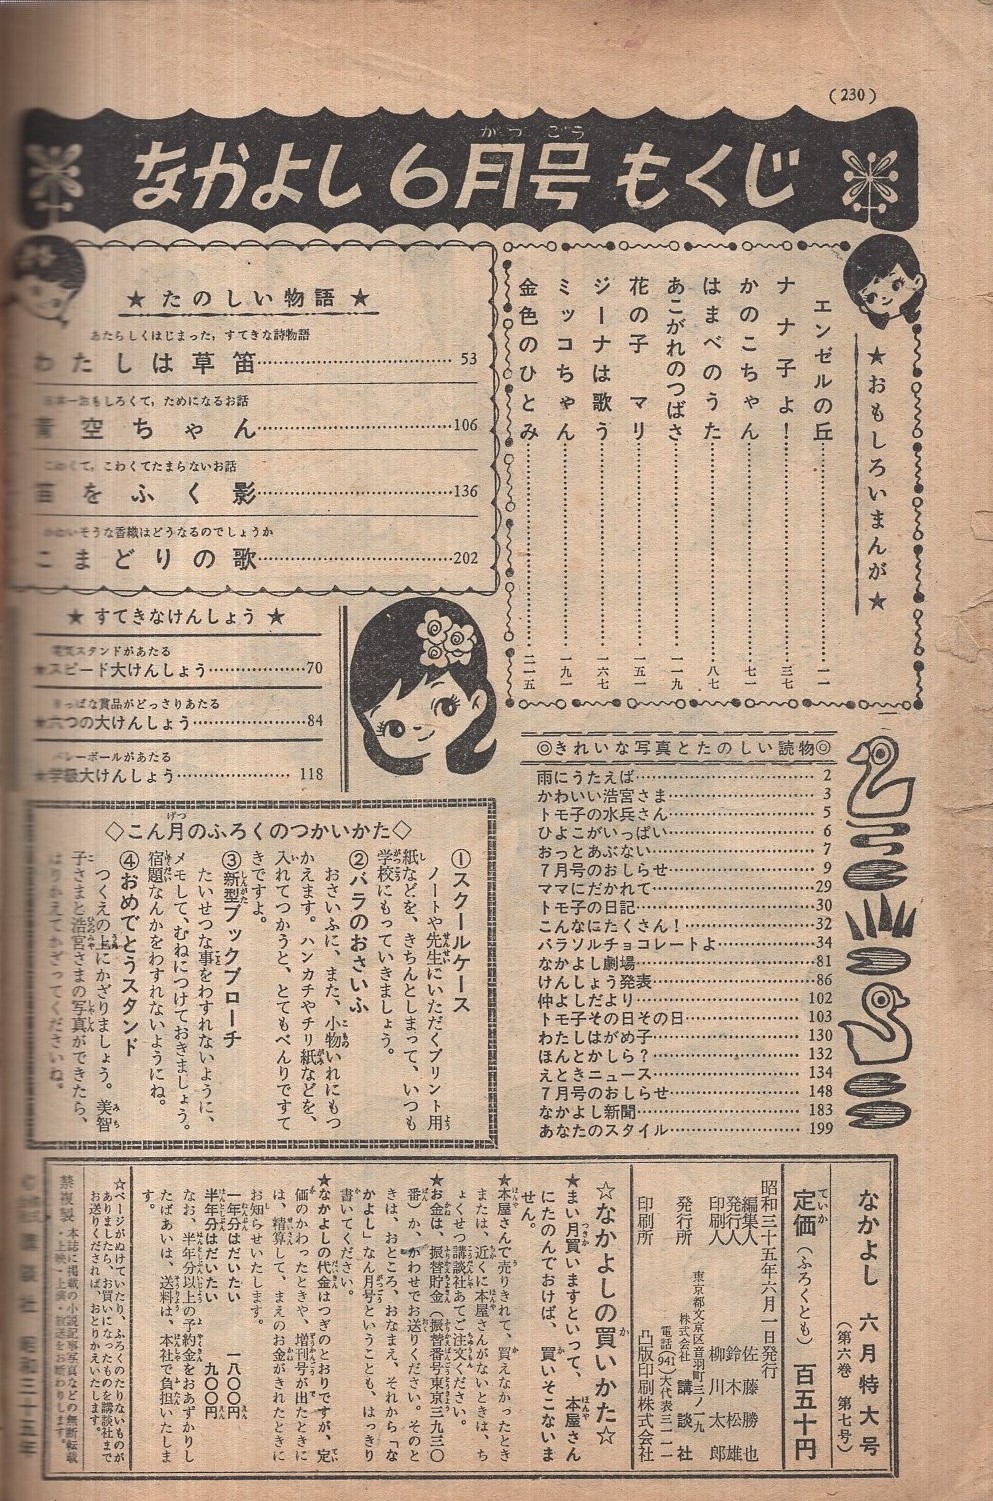 (230)
なかよし6月号もくじ
がつごう
★おもしろいまんが★
エンゼルの丘……一一
ナナ子よ！……三七
かのこちゃん……七一
はまべのうた……八七
あこがれのつばさ……一一九
花の子マリ……一五一
ジーナは歌う……一六七
ミッコちゃん……一九一
金色のひとみ……二一五
★たのしい物語★
あたらしくはじまった，すてきな詩物語
わたしは草笛……53
おもしろくて，ためになるお話
青空ちゃん……106
こわくてたまらないお話
笛をふく影……136
そうな香織はどうなるのでしょうか
こまどりの歌……202
★すてきなけんしょう★
電気スタンドがあたる
★スピード大けんしょう……70
りっぱな賞品がどっさりあたる
★六つの大けんしょう……84
バレーボールがあたる
★学級大けんしょう……118
◎きれいな写真とたのしい読物◎
雨にうたえば……2
かわいい浩宮さま……3
トモ子の水兵さん……5
ひよこがいっぱい……6
おっとあぶない……7
７月号のおしらせ……9
ママにだかれて……29
トモ子の日記……30
こんなにたくさん！……32
パラソルチョコレートよ……34
なかよし劇場……81
けんしょう発表……86
仲よしだより……102
トモ子その日その日……103
わたしはがめ子……130
ほんとかしら？……132
えときニュース……134
７月号のおしらせ……148
なかよし新聞……183
あなたのスタイル……199
◇こん月のふろくのつかいかた◇
①スクールケース
ノートや先生にいただくプリント用
紙などを、きちんとしまって、いつも
学校にもっていきましょう。
②バラのおさいふ
おさいふに、また、小物いれにもつ
かえます。ハンカチやチリ紙などを、
入れてつかうと、とてもべんりですて
きですよ。
③新型ブックブローチ
たいせつな事をわすれないように、
メモして、むねにつけておきましょう。
宿題なんかをわすれないようにね。
④おめでとうスタンド
つくえの上にかざりましょう。美智
子さまと浩宮さまの写真ができたら、
はりかえてかざってくださいね。
なかよし　六月特大号
（第六巻　第七号）
定価（ふろくとも）百五十円
昭和三十五年六月一日発行
編集人　佐藤勝也
発行人　鈴木松雄
印刷人　柳川太郎
東京都文京区音羽町三ノ一九
発行所　株式会社　講談社
電話（941）大代表三一一一
印刷所　凸版印刷株式会社
☆なかよしの買いかた☆
★まい月買いますといって、本屋さん
にたのんでおけば、買いそこないま
せん。
★本屋さんで売りきれて、買えなかったとき
または、近くに本屋さんがないときは、ち
ょくせつ講談社あてご注文ください。
★お金は、振替貯金（振替番号東京三九三〇
番）か、かわせでお送りください。そのと
きは、おところ、おなまえ、それから「な
かよし」なん月号ということも、はっきり
書いてください。
★なかよしの代金はつぎのとおりですが、定
価のかわったときや、増刊号が出たときに
は、精算して、まえのお金がきれたときに
お知らせいたします。
一年分はだいたい　一八〇〇円
半年分はだいたい　九〇〇円
なお、半年分以上の予約金をおあずかりし
たばあいは、送料は、本社で負担いたしま
す。
☆ページがぬけていたり、ふろくのたりないものが
ありましたら、お買いになったものを講談社まで
お送りくだされば、おとりかえいたします。
禁複製　本誌に掲載の小説記事写真などの無断転載
・上映・上演・放送をお断わりします。
©　講談社　昭和三十五年